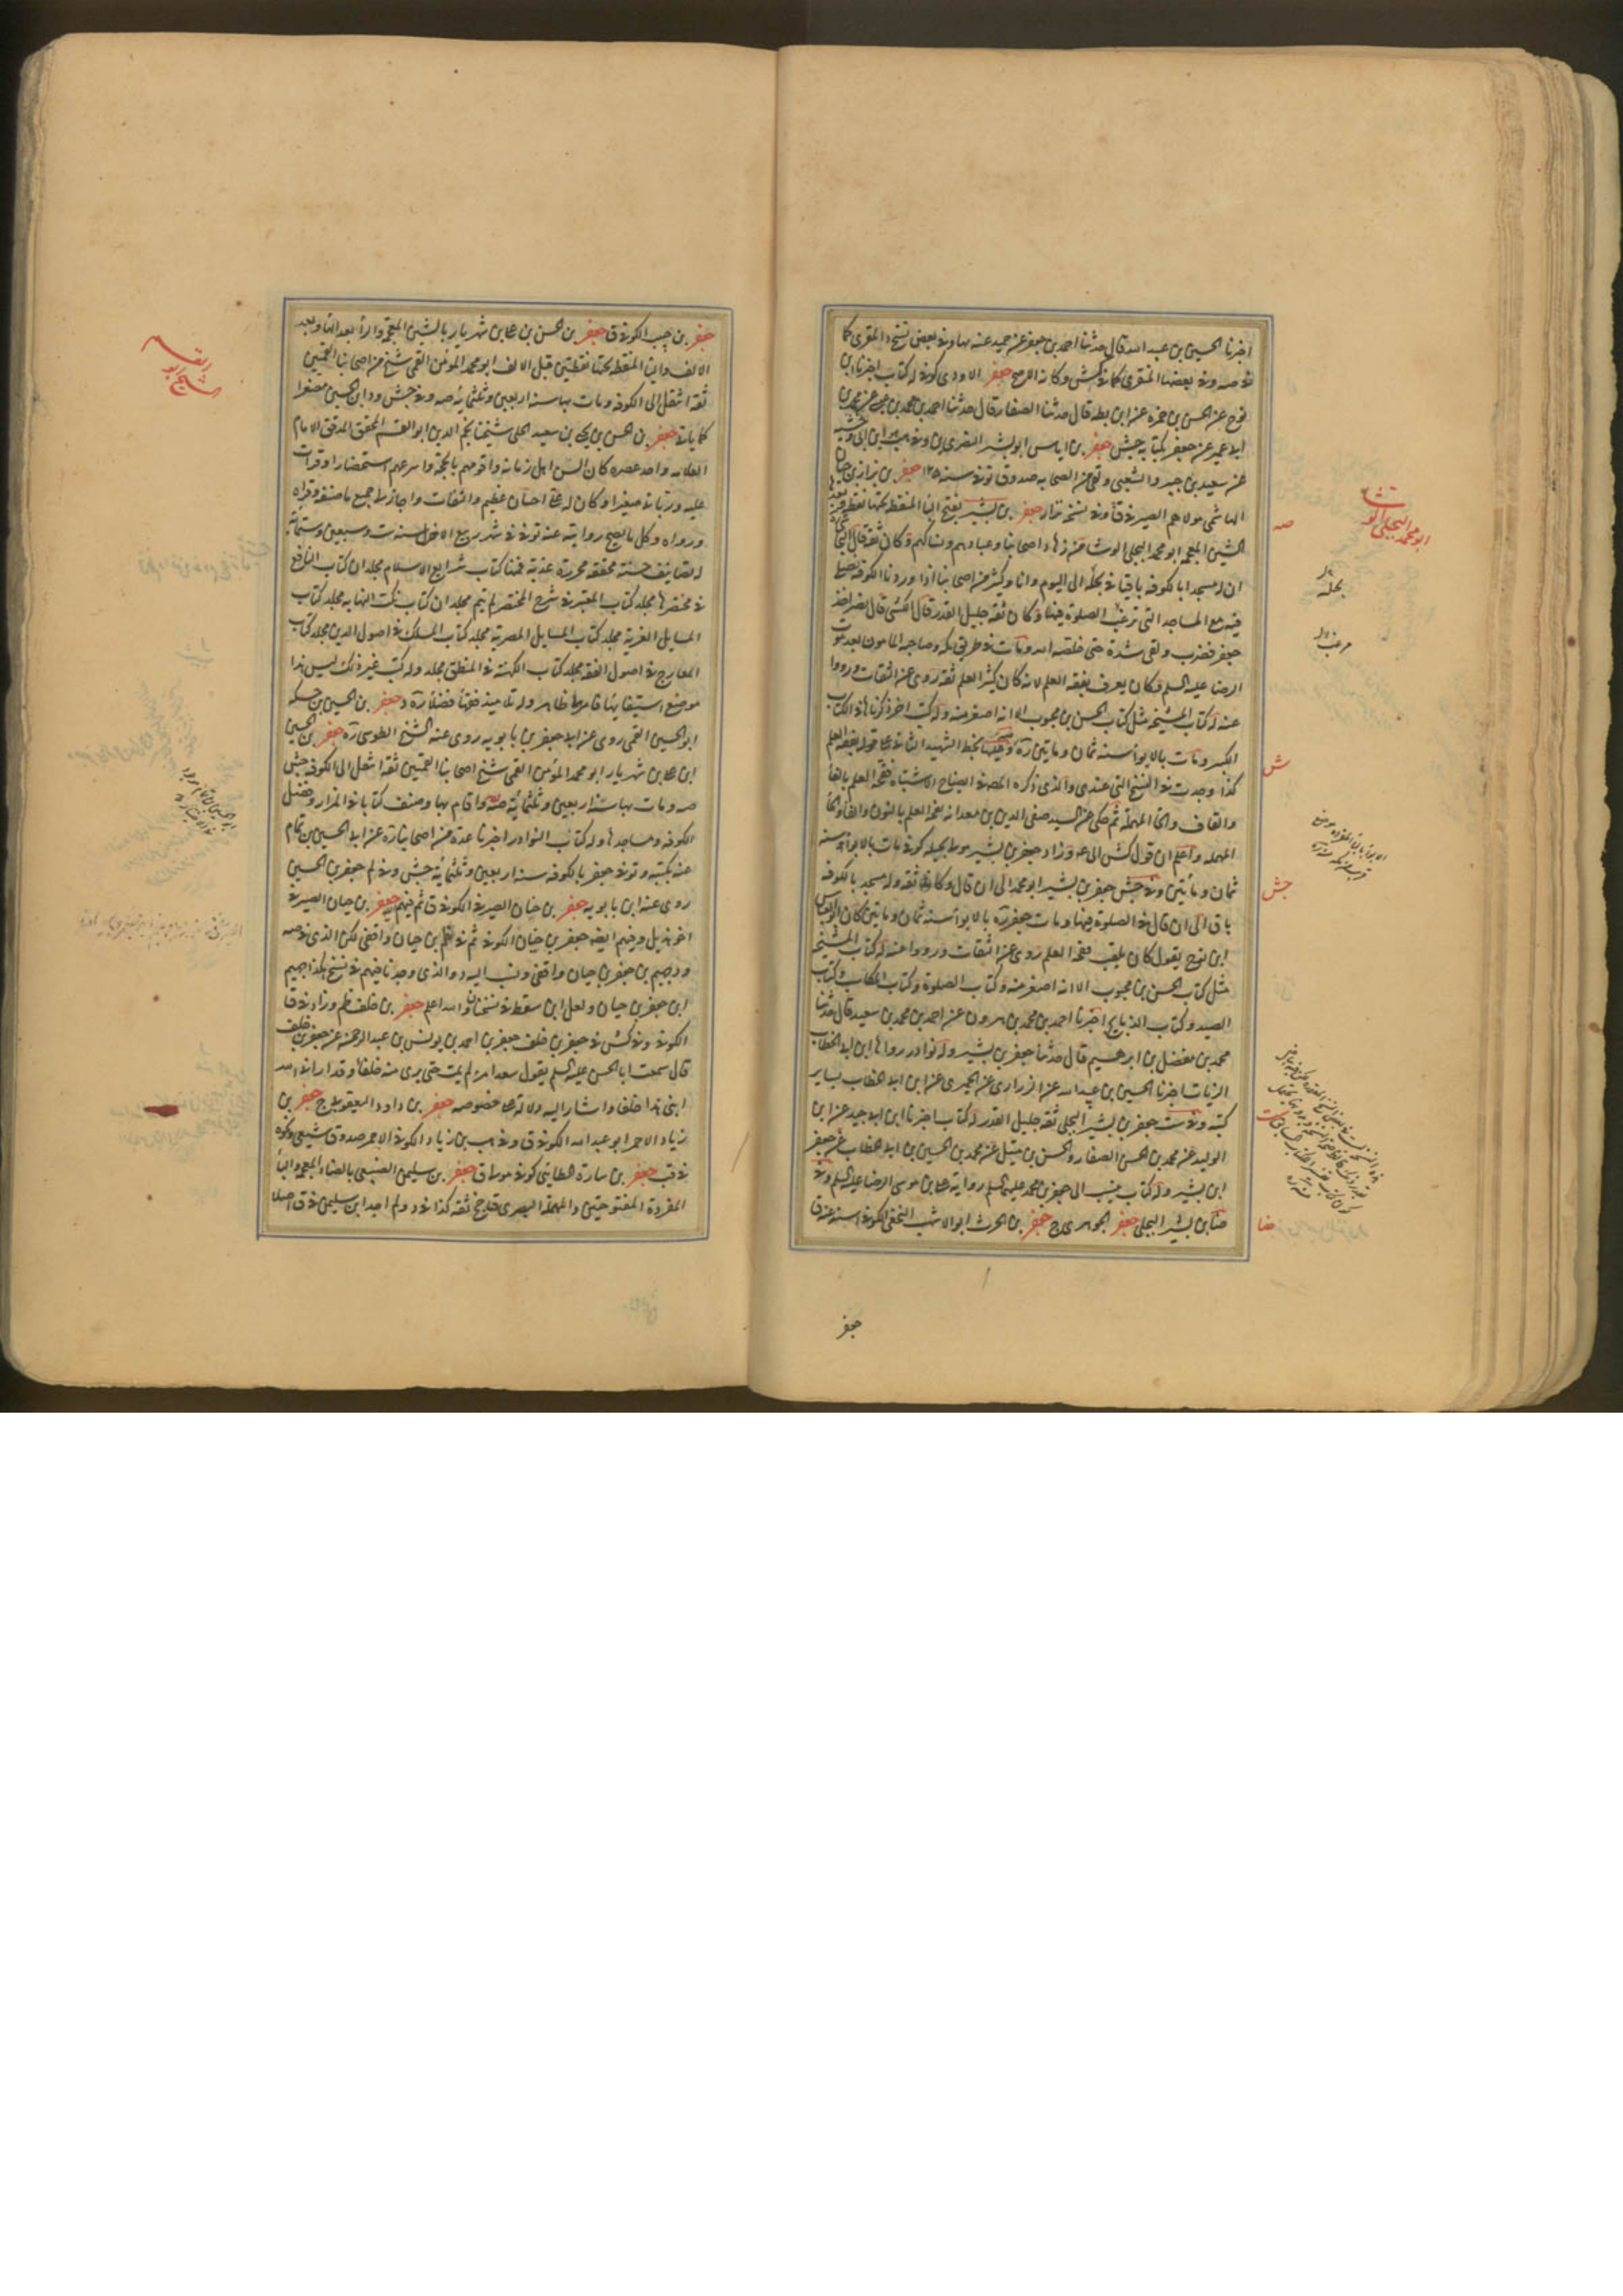 اخبرنا الحسين بن عبد الله قال حدثنا احمد بن جعفر عن حميد عنه بها وفي بعض نسخ د المقري كما
في صه وفي بعضها المنقري كما في كش وكانه الارجح جعفر الاودي كوفي له كتاب اخبرنا ابن
نوح عن الحسن بن حمزة عن ابن بطه قال حدثنا الصفار قال حدثنا احمد بن محمد بن عيسى عن محمد بن
ابي عمير عن جعفر بكتابه جش جعفر بن اياس ابو بشر البصري ين وفي هب ابن ابي وحشية
عن سعيد بن جبير والشعبي ولقي من الصحابه صدوق توفي سنه ١٢٥ جعفر بن بزاز بن حيان
الهاشمي مولاهم الصيرفي ق وفي نسخه نزار جعفر بن بشير بفتح الباء المنقطه تحتها نقطه
الشين المعجمه ابو محمد البجلي الوشا من زهاد اصحابنا وعبادهم ونساكهم وكان ثقه قال النجاشي
ان له مسجدا بالكوفه باقيا في بجيله الى اليوم وانا وكثير من اصحابنا اذا وردنا الكوفه نصلي
فيه مع المساجد التي ترغب الصلوة فيها وكان ثقه جليل القدر قال الكشي قال نصر اخذ
جعفر فضرب ولقي شدة حتى خلصه الله ومات في طريق مكه وصاحبه المامون بعد موت
الرضا عليه السلم وكان يعرف بفقه العلم لانه كان كثير العلم ثقه روى عن الثقات ورووا
عنه له كتاب المشيخه مثل كتاب الحسن بن محبوب الا انه اصغر منه وله كتب اخر ذكرناها في الكتاب
الكبير ومات بالابواء سنه ثمان ومايتين ره صه وعليها بخط الشهيد الثاني على قوله بفقه العلم
كذا وجدت في النسخ التي عندي والذي ذكره المصه في ايضاح الاشتباه فقحة العلم بالفاء
والقاف والحاء المهمله ثم حكى عن السيد صفي الدين بن معد انه نفحة العلم بالنون والفاء والحاء
المهمله واعلم ان قول كش الى عه وزاد جعفر بن بشير مولى بجيله كوفي مات بالابواء سنه
ثمان ومأتين وفي جش جعفر بن بشير ابو محمد الى ان قال وكان ثقه وله مسجد بالكوفه
باق الى ان قال في الصلوة فيها ومات جعفر ره بالابواء سنه ثمان ومايتين كان ابو العباس
ابن نوح يقول كان يلقب فقحة العلم روى عن الثقات ورووا عنه له كتاب المشيخه
مثل كتاب الحسن بن محبوب الا انه اصغر منه وكتاب الصلوة وكتاب المكاسب وكتاب
الصيد وكتاب الذبايح اخبرنا احمد بن محمد بن هرون عن احمد بن محمد بن سعيد قال حدثنا
محمد بن مفضل بن ابرهيم قال حدثنا جعفر بن بشير وله نوادر رواها ابن ابي الخطاب
الزيات اخبرنا الحسين بن عبيد الله عن الزراري عن الحميري عن ابن ابي الخطاب بساير
كتبه وفي ست جعفر بن بشير البجلي ثقه جليل القدر له كتاب اخبرنا ابن ابي جيد عن ابن
الوليد عن محمد بن الحسن الصفار والحسن بن متيل عن محمد بن الحسين بن ابي الخطاب عن جعفر
ابن بشير وله كتاب ينسب الى جعفر بن محمد عليهما السلم رواية علي بن موسى الرضا عليه السلم وفي
ضا بن بشير البجلي جعفر الجوهري ج جعفر بن الحرث ابو الاشهب النخعي الكوفي اسند عنه ق
جعفر
ابو محمد البجلي الو
شا
صه
بجيله
ش
جش
ضا
جعفر بن حبيب الكوفي ق جعفر بن الحسن بن علي بن شهريار بالشين المعجمه والراء بعد الهاء وبعد
الالف والياء المنقطه تحتها نقطتين قبل الالف ابو محمد المؤمن القمي شيخ من اصحابنا القميين
ثقه انتقل الى الكوفه ومات بها سنه اربعين وثلثمائه صه وفي جش ود ابن الحسين مصغرا
كما ياتي جعفر بن الحسن بن يحيى بن سعيد الحلي شيخنا نجم الدين ابو القسم المحقق المدقق الامام
العلامه واحد عصره كان السن اهل زمانه واقومهم بالحجه واسرعهم استحضارا قرات
عليه ورباني صغيرا وكان له علي احسان عظيم والتفات واجاز لي جميع ما صنفه وقراه
ورواه وكل ما يصح روايته عنه توفي في شهر ربيع الاخر سنه ست وسبعين وستمائه
له تصانيف حسنه محققه محرره عذبه فمنها كتاب شرايع الاسلام مجلدان كتاب النافع
في مختصرها مجلد كتاب المعتبر في شرح المختصر لم يتم مجلدان كتاب نكت النهايه مجلد كتاب
المسايل الغريه مجلد كتاب المسايل المصريه مجلد كتاب المسلك في اصول الدين مجلد كتاب
المعارج في اصول الفقه مجلد كتاب الكهنه في المنطق مجلد وله كتب غير ذلك ليس هذا
موضع استيفائها فامرها ظاهر وله تلاميذ فقهاء فضلاء ره د جعفر بن الحسين بن حسكه
ابو الحسين القمي روى عن ابي جعفر بن بابويه روى عنه الشيخ الطوسي ره جعفر بن الحسين
ابن علي بن شهريار ابو محمد المؤمن القمي شيخ اصحابنا القميين ثقه انتقل الى الكوفه جش
صه ومات بها سنه اربعين وثلثمائه صه واقام بها وصنف كتابا في المزار وفضل
الكوفه ومساجدها وله كتاب النوادر اخبرنا عدة من اصحابنا ره عن ابي الحسين بن تمام
عنه بكتبه وتوفي جعفر بالكوفه سنه اربعين وثلثمائه جش وفي لم جعفر بن الحسين
روى عنه ابن بابويه جعفر بن حيان الصيرفي الكوفي ق ثم فيهم جعفر بن حيان الصيرفي
اخو هذيل وفيهم ايضه جعفر بن حيان الكوفي ثم في ظم بن حيان واقفي لكن الذي في صه
ود جهيم بن جعفر بن حيان واقفي ونسب اليه د والذي وجدنا فيهم في نسخ هكذا جهيم
ابن جعفر بن حيان ولعل ابن سقط في نسختنا والله اعلم جعفر بن خلف ظم وزاد في قا
الكوفي وفي كش في جعفر بن خلف جعفر بن احمد بن يونس بن عبد الرحمن عن جعفر بن خلف
قال سمعت ابا الحسن عليه السلم يقول سعد امرء لم يمت حتى يرى منه خلفا وقد اراني الله
ابني هذا خلفا واشار اليه دلاله على خصوصه جعفر بن داود اليعقوبي ج جعفر بن
زياد الاحمر ابو عبد الله الكوفي ق وفي هب بن زياد الكوفي الاحمر صدوق شيعي ونحوه
في قب جعفر بن سارة الطايي كوفي مولاه ق جعفر بن سليمن الضبيعي بالضاد المعجمه والباء
المفردة المفتوحتين والمهمله البصري ق جخ ثقه كذا في د ولم اجد ابن سليمن في ق اصلا